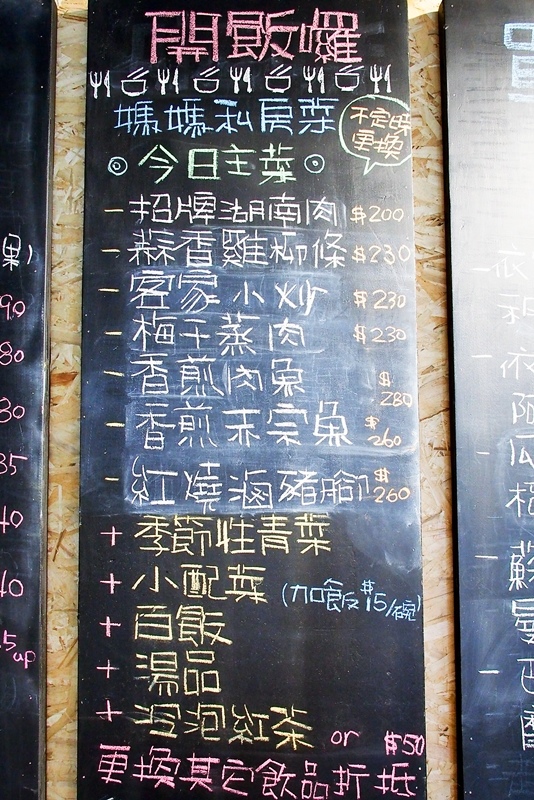 開飯囉
媽媽私房菜
不定時
更換
今日主菜
－招牌湖南肉 $200
－蒜香雞柳條 $230
－客家小炒 $230
－梅干蒸肉 $230
－香煎肉魚 $280
－香煎赤宗魚 $260
－紅燒滷豬腳 $260
＋季節性青菜
＋小配菜 (加飯$15/碗)
＋白飯
＋湯品
＋冷泡紅茶 or $50
更換其它飲品折抵
果)
90
80
30
35
40
40
5up